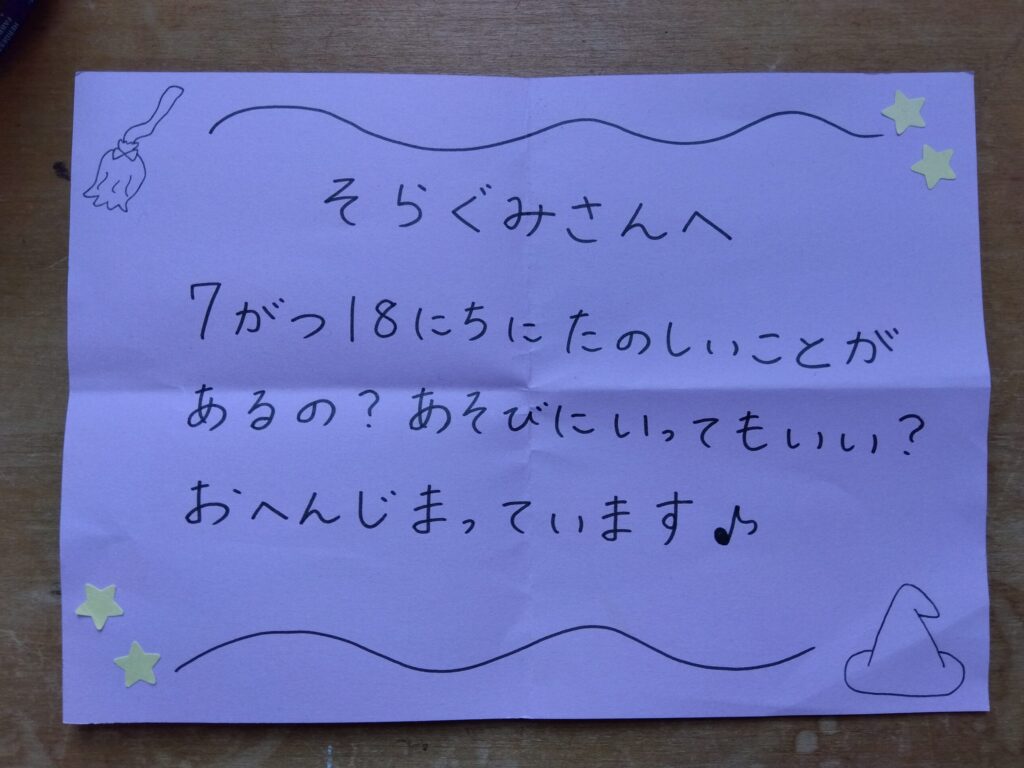 そらぐみさんへ
7がつ18にちに たのしいことが
あるの？あそびにいってもいい？
おへんじまっています♪